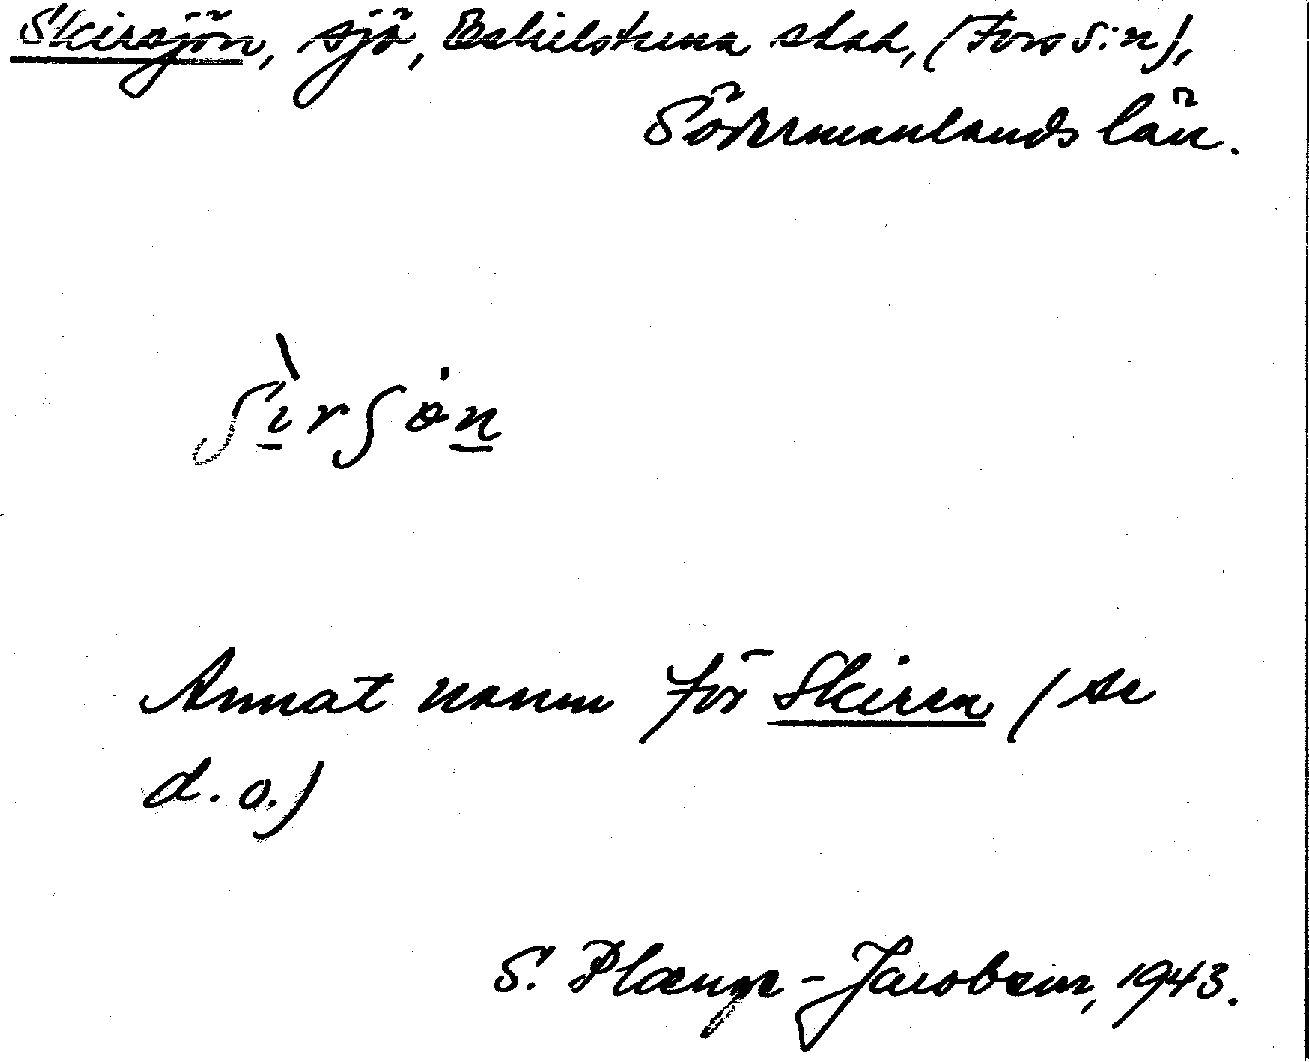 Skiresjön, sjö, Eskilstuna stad, (Fors s:n),
Södermanlands län.
ʃìrʃön
Annat namn för Skiren (se
d. o.)
S. Plænge-Jacobson, 1943.